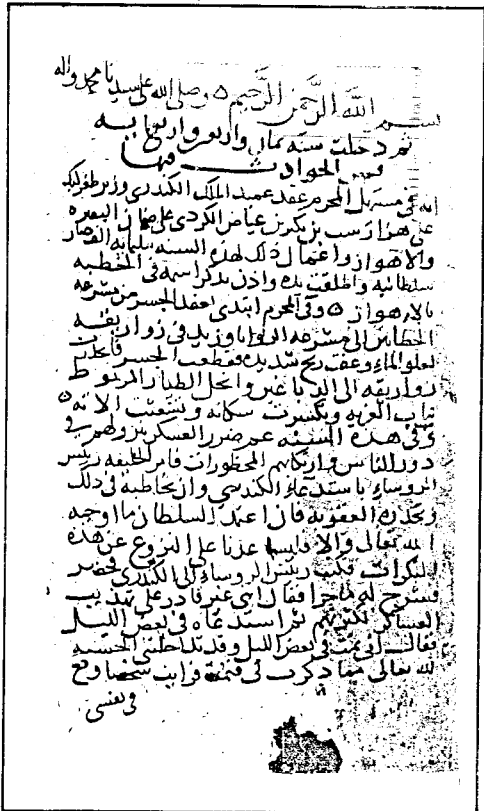 بسم الله الرحمن الرحيم ٥ وصلى الله على سيدنا محمد واله
ثم دخلت سنة ثمان واربعين واربعمايه
فمن الحوادث فيها
انه في مستهل المحرم عقد عميد الملك الكندري وزير طغرلبك
على هزارسب بن بنكير بن عياض الكردي على ضمان البصره
والاهواز واعمال ذلك لهذه السنه بثلثمايه الف دينار
سلطانيه واطلقت يده واذن بذكر اسمه في الخطبه
بالاهواز ٥ وفي المحرم ابتدى بعقد الجسر من مشرعه
الحطابين الى مشرعه الروايا وزيد في زواريقه
لعلو الماء وعصفت ريح شديده فقطعت الجسر فانحدرت
زواريقه الى الدباغين وانحل الطيار المربوط
بباب الغربه وتكسرت سكانه وتشعثت الاته ٥
وفي هذه السنة عم ضرر العسكر بنزولهم في
دور الناس وارتكابهم المحظورات فامر الخليفه رييس
الروساء باستدعاء الكندري وان يخاطبه في ذلك
ويحذره العقوبه فان اعتمد السلطان ما اوجبه
الله تعالى والا فليساعدنا على النزوح عن هذه
المنكرات فكتب رييس الروساء الى الكندري فحضر
فشرح له ما جرا فقال اني غير قادر على تهذيب
العساكر لكثرتهم ثم استدعاه في بعض الليل
فقال اني نمت في بعض الليل وقد تداخلني الخشيه
لله تعالى مما ذكرت لي فنمت فرايت شخصا وقع
في نفسي